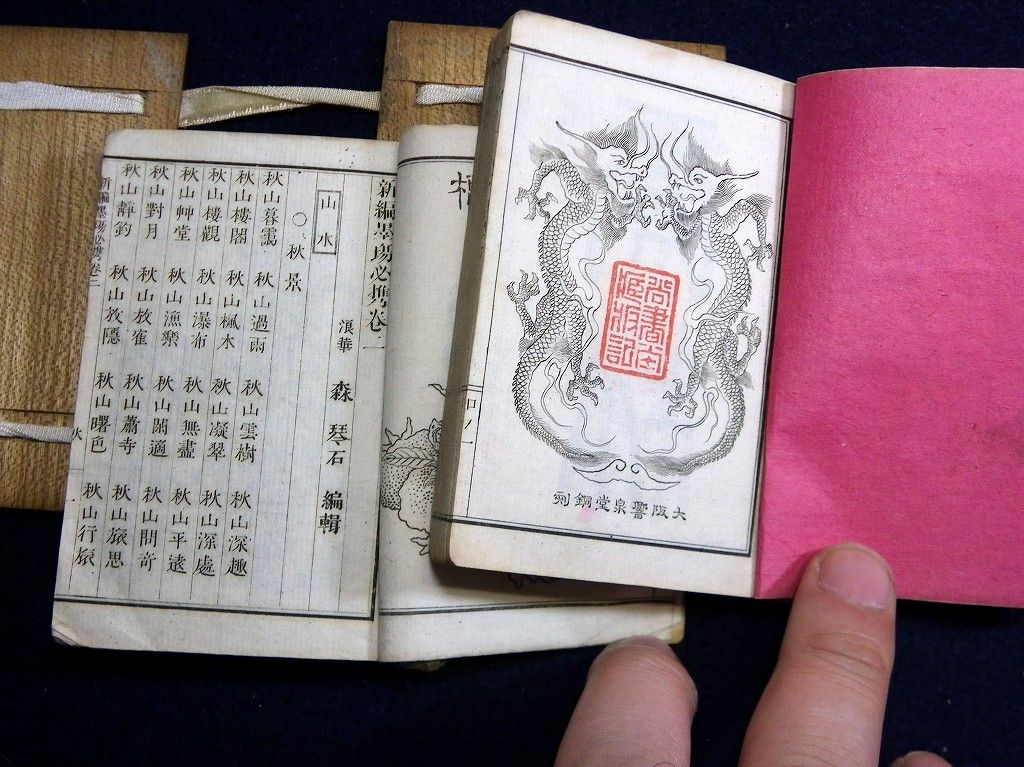 大阪響泉堂銅刻
新編墨場必攜卷二
浪華 森 琴石 編輯
山水
○秋景
秋山暮靄 秋山過雨 秋山雲樹 秋山深趣
秋山樓閣 秋山楓木 秋山凝翠 秋山深處
秋山樓觀 秋山瀑布 秋山無盡 秋山平遠
秋山艸堂 秋山漁樂 秋山閒適 秋山問奇
秋山對月 秋山放隺 秋山蕭寺 秋山旅思
秋山靜釣 秋山教隱 秋山曙色 秋山行旅